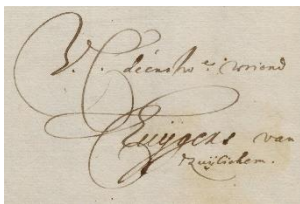 V. E. dienstwe. vriend
C Huijgens van
Zuijlichem.